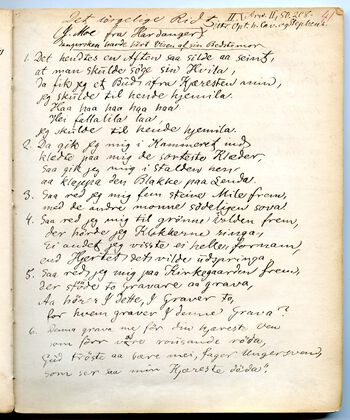 Det sörgelige Rid
J. Moe fra Hardanger
1. Det hendtes en Aften saa silde aa seint,
at man skulde söge sin Hvila,
Da fik jeg et Bud ifra Kjæresten min,
jeg skulde til hende hjemila.
Haa haa haa haa haa
Hei fallalila laa,
jeg skulde til hende hjemila.
2. Da gik jeg mig i Kammeret ind
klædte paa mig de sorteste Klæder,
Saa gik jeg mig i Stalden ned
aa kleppa den Blakke paa Lenda.
3. Saa red jeg mig fem steine Mile frem,
med de andre monne södeligen sova
4. Saa red jeg mig til grönne Volden frem,
der hörde jeg Klokkerne singa,
Ei andet jeg visste ei heller fornam,
end Hjertet det vilde udspringa
5. Saa red jeg mig paa Kirkegaarden frem,
der stode to gravere aa grava,
Aa hör I dette, I Graver to,
for hvem graver I denne Grava?
6. Denna grava me för din Kjærest Ven
som förr våre rousande röda,
Gud tröste aa bære mei, fager Ungersvend,
som ser saa min Kjæreste döda".